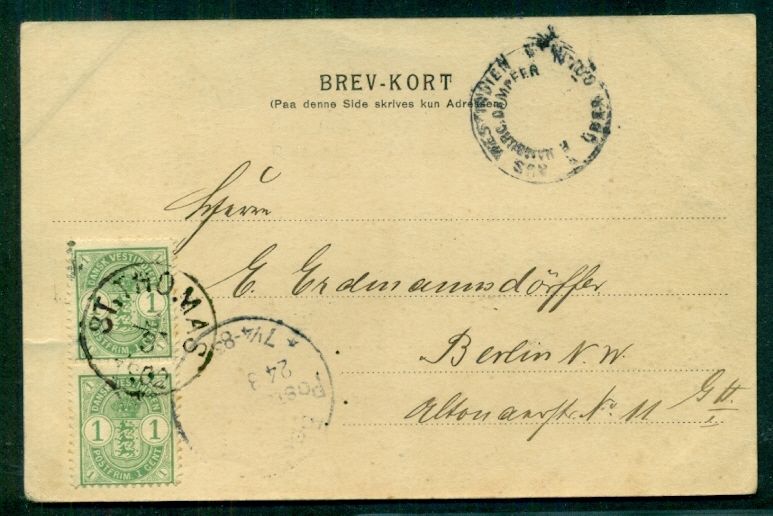 BREV-KORT
(Paa denne Side skrives kun Adressen
AUS WESTINDIEN ÜBER
HAMBURG. DAMPFER
Herrn
E. Erdmannsdörffer
Berlin N. W.
Altonaerstr. No 11 G H I
DANSK VESTINDIEN
1 1
POSTFRIM. 1 CENT
ST. THOMAS
1902
* 7¼-8
24 3
DANSK VESTINDIEN
1 1
POSTFRIM. 1 CENT